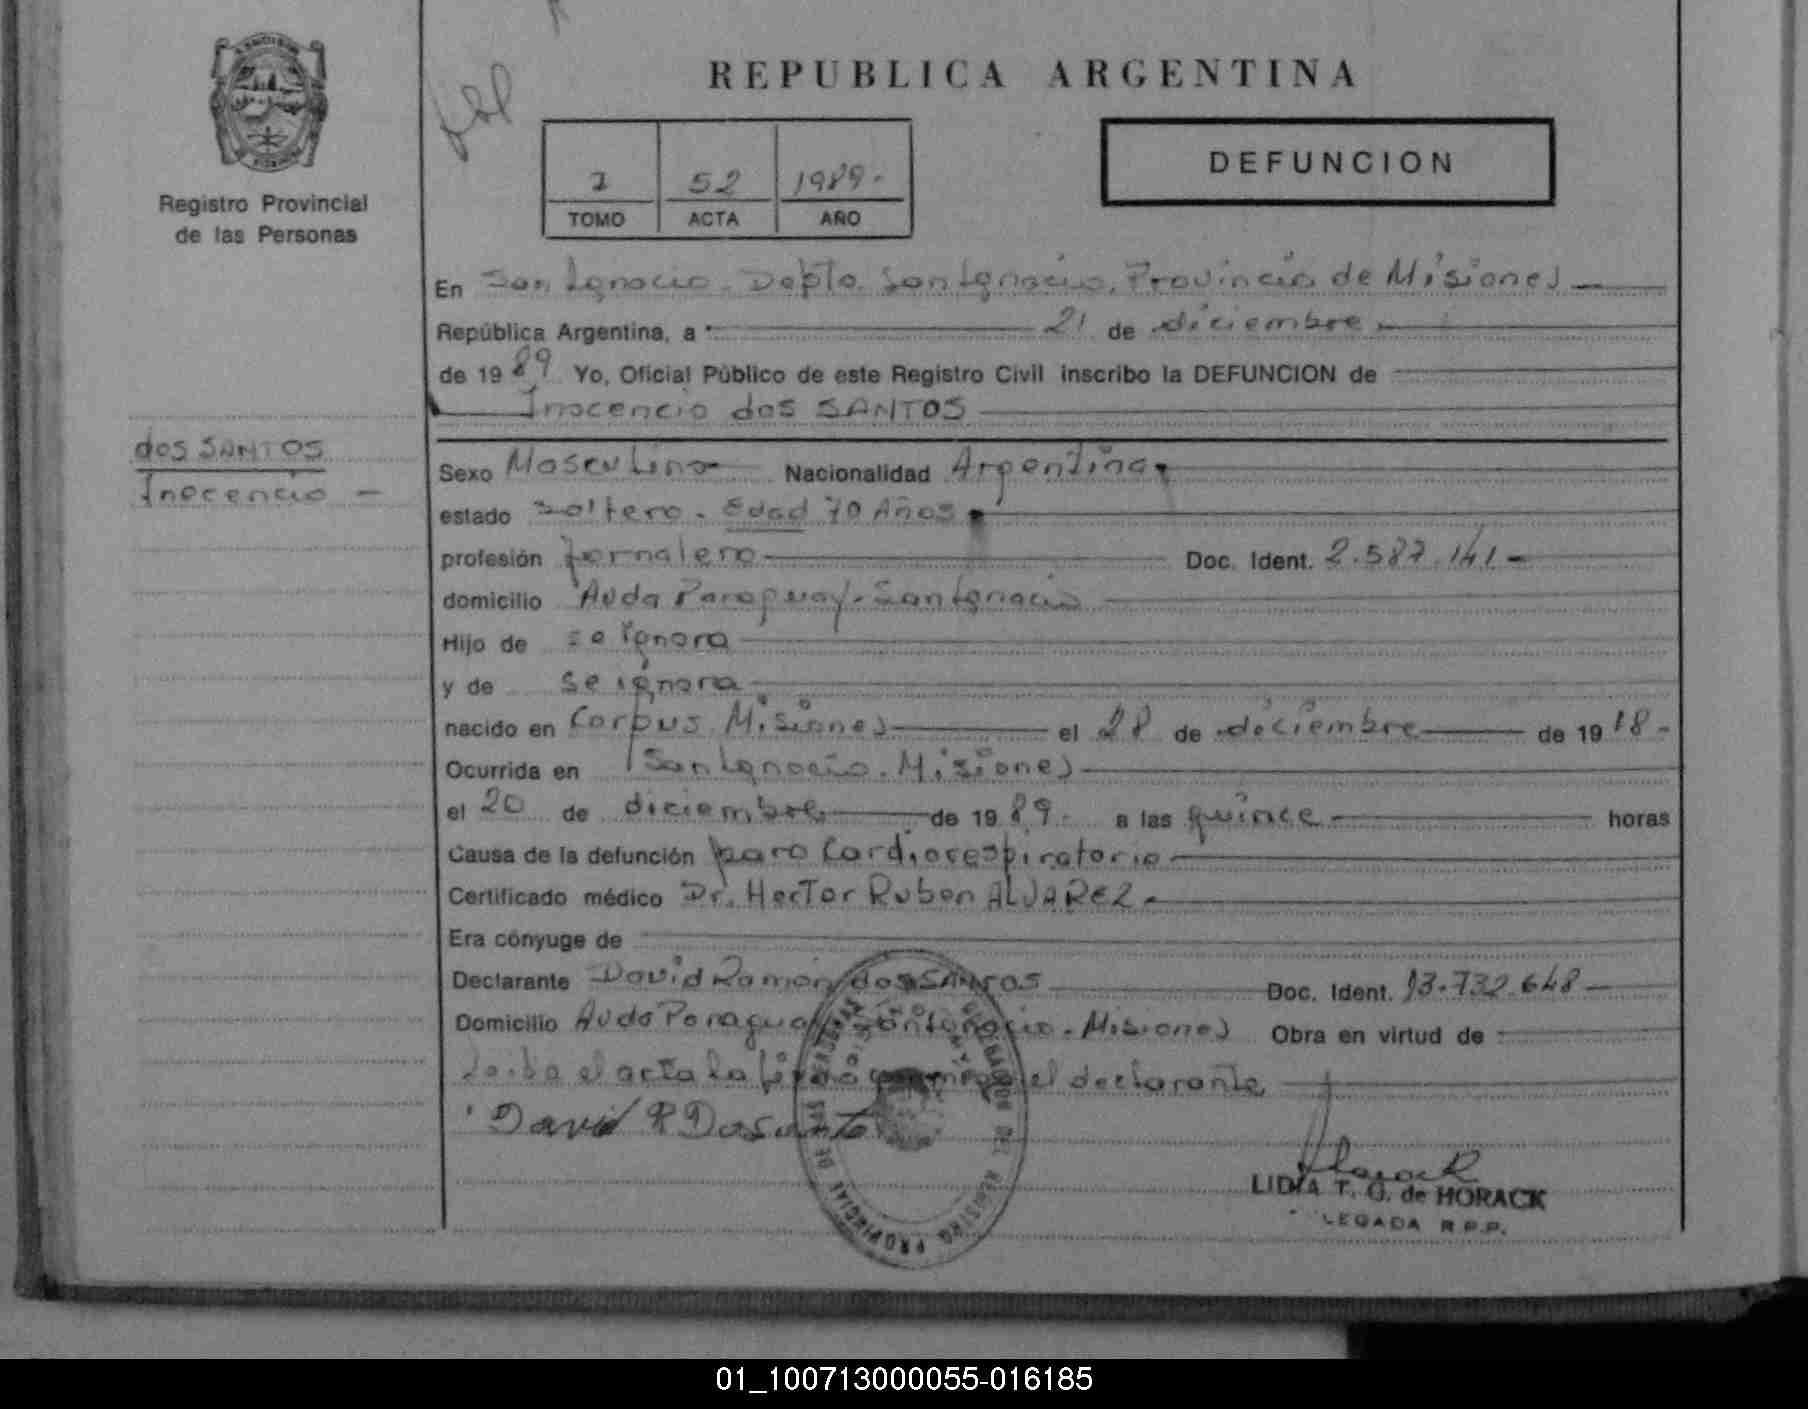 REPUBLICA ARGENTINA
Registro Provincial
de las Personas
52 1989.-
TOMO ACTA AÑO
DEFUNCION
En San Ignacio. Depto. San Ignacio, Provincia de Misiones
República Argentina, a 21 de diciembre
de 1989 Yo, Oficial Público de este Registro Civil inscribo la DEFUNCION de
Inocencio dos SANTOS
dos SANTOS
Inocencio -
Sexo Masculino Nacionalidad Argentina
estado soltero. Edad 70 Años
profesión Jornalero Doc. Ident. 2.587.141-
domicilio Avda Paraguay. San Ignacio
Hijo de se ignora
y de se ignora
nacido en Corpus. Misiones el 28 de diciembre de 1918-
Ocurrida en San Ignacio. Misiones
el 20 de diciembre de 1989.- a las quince horas
Causa de la defunción paro Cardiorespiratorio
Certificado médico Dr. Hector Ruben ALVAREZ.-
Era cónyuge de
Declarante David Ramón dos SANTOS Doc. Ident. 13.732.648-
Domicilio Avda Paraguay San Ignacio. Misiones Obra en virtud de
Leida el acta la firma conmigo el declarante
David R Dos
LIDIA T. G. de HORACK
LEGADA R.P.P.
REGISTRO PROVINCIAL DE
01_100713000055-016185